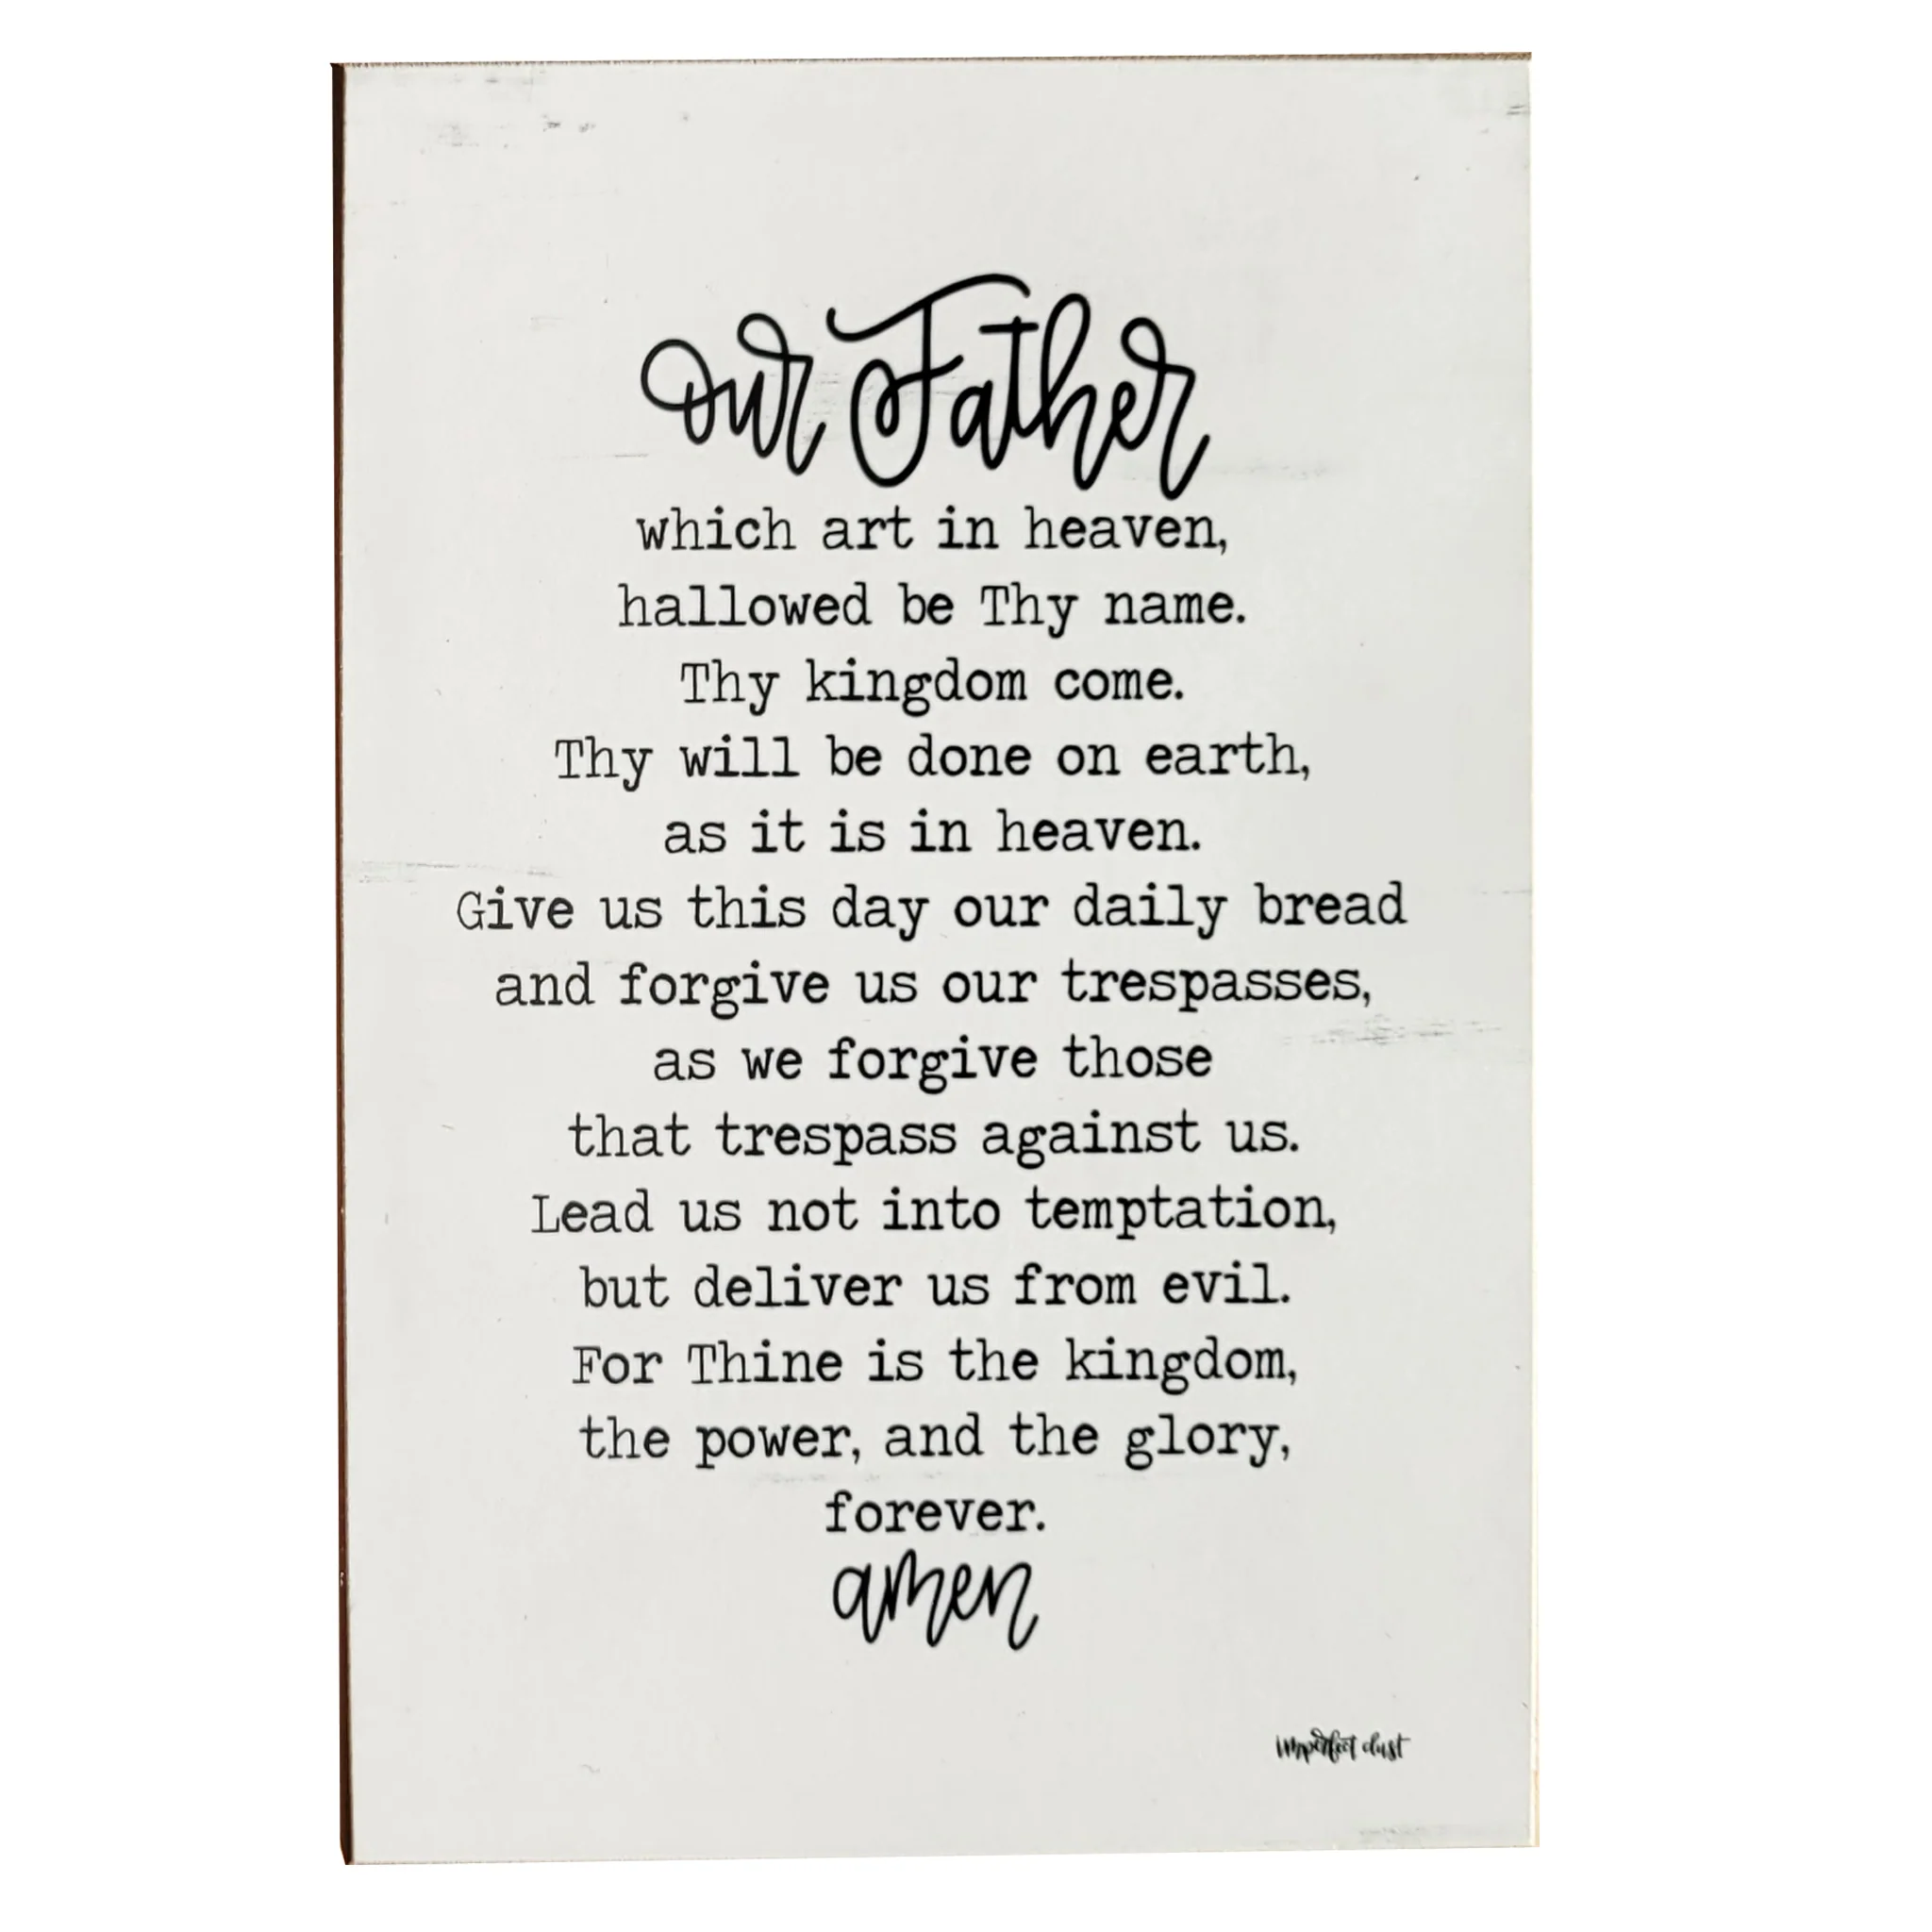 our Father
which art in heaven,
hallowed be Thy name.
Thy kingdom come.
Thy will be done on earth,
as it is in heaven.
Give us this day our daily bread
and forgive us our trespasses,
as we forgive those
that trespass against us.
Lead us not into temptation,
but deliver us from evil.
For Thine is the kingdom,
the power, and the glory,
forever.
amen
imperfect dust